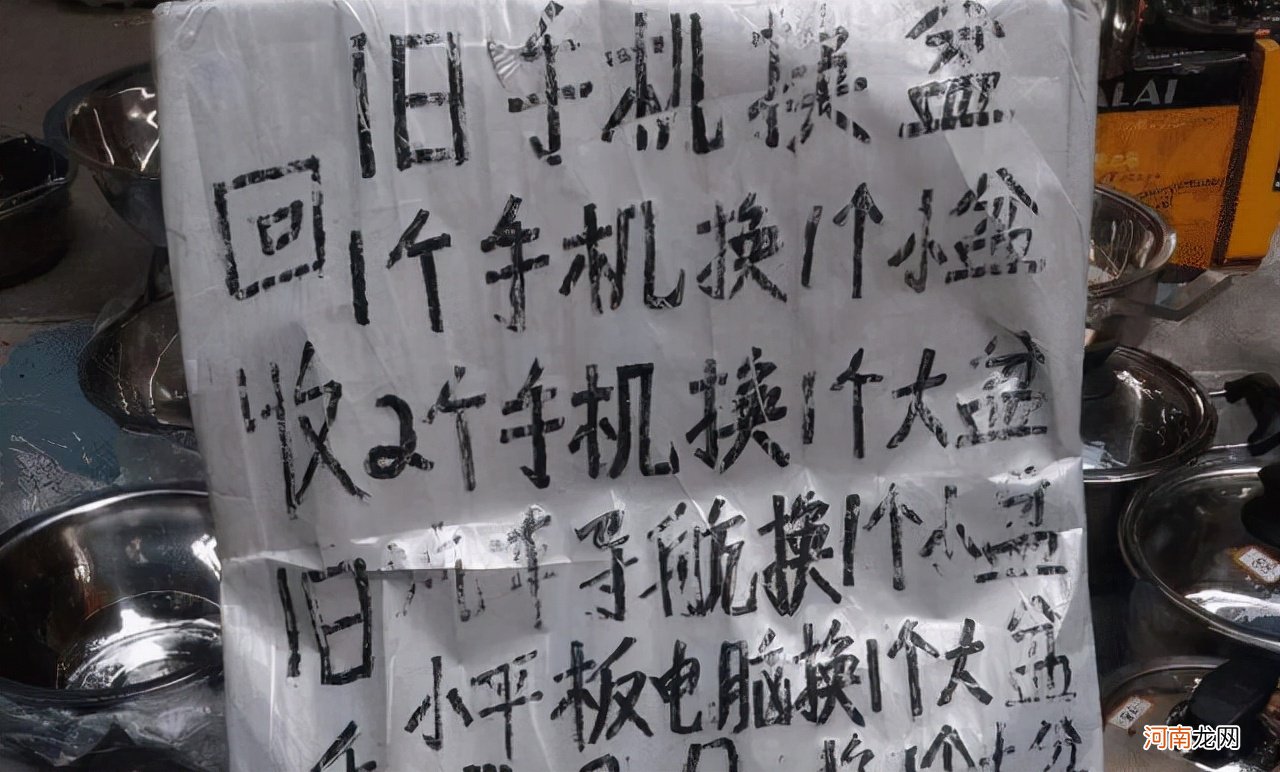 旧手机换盆
回 1个手机换1个小盆
收 2个手机换1个大盆
旧 1个车导航换1个小盆
小平板电脑换1个大盆
ALAI
河南龙网